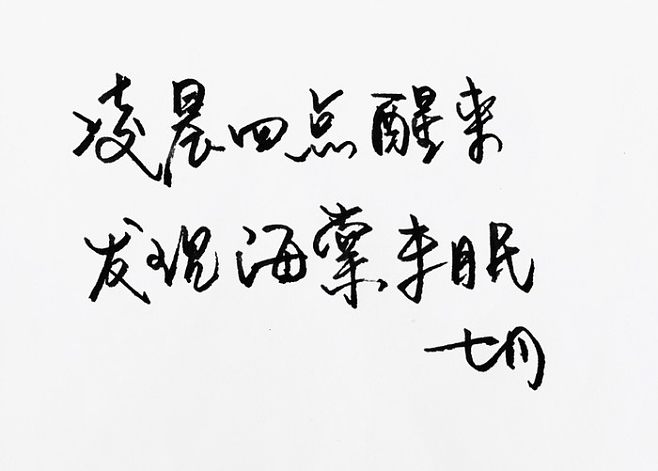 凌晨四点醒来
发现海棠未眠
七月